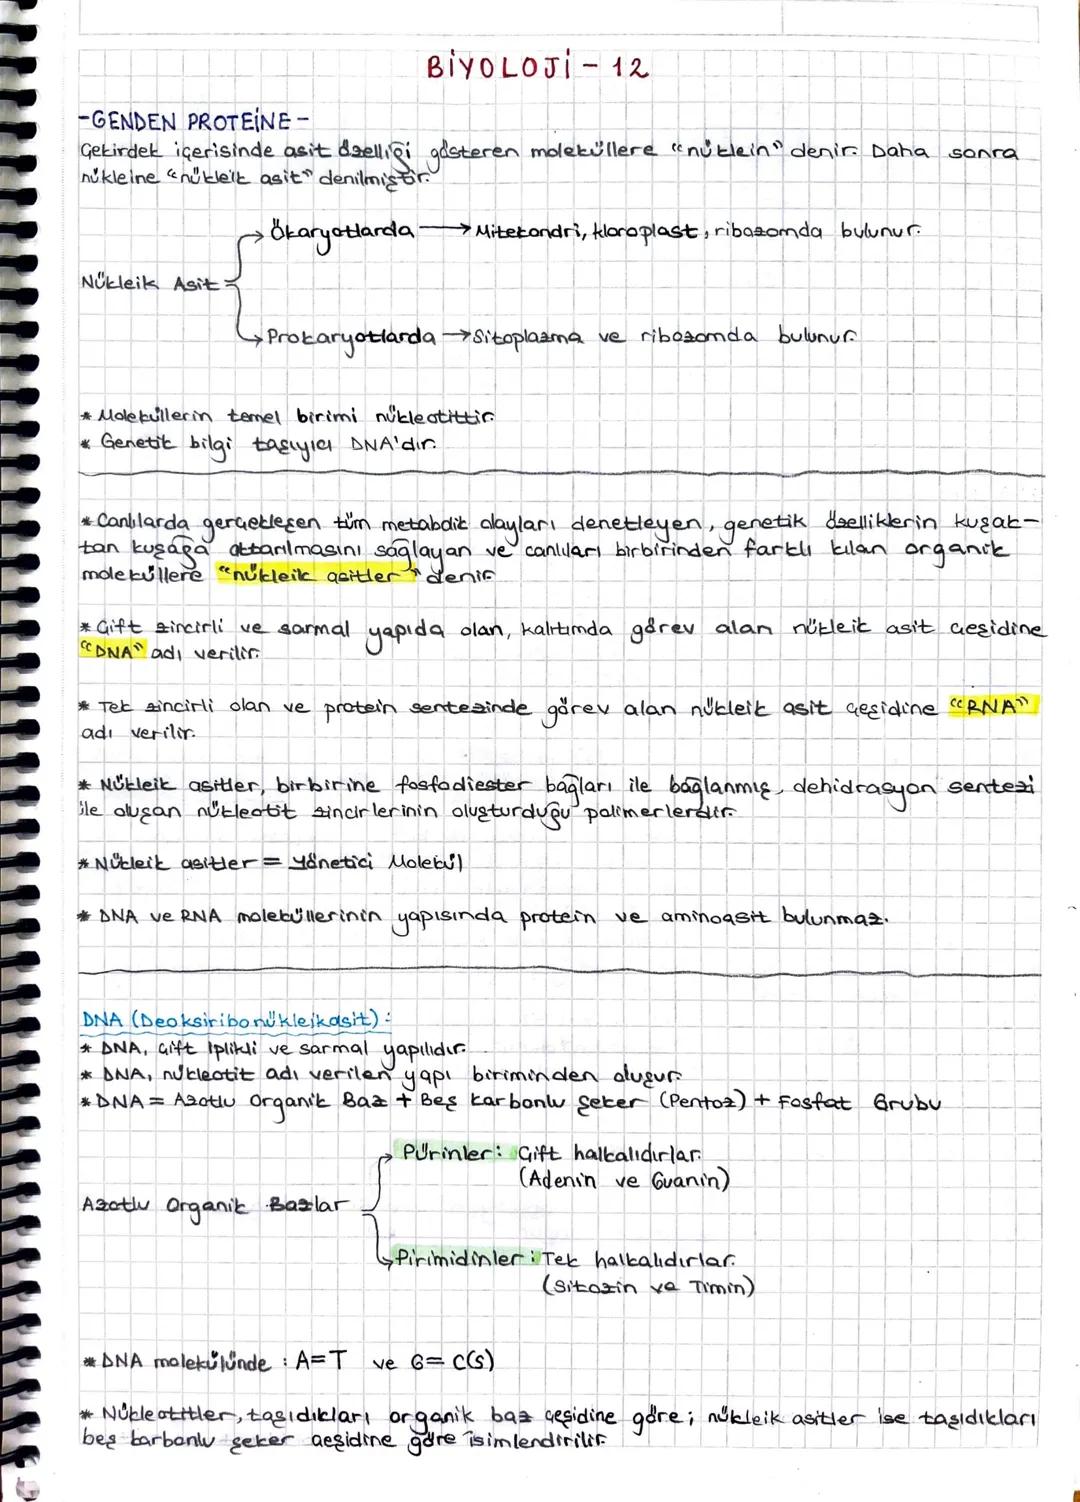 BİYOLOJİ - 12
-GENDEN PROTEİNE-
Çekirdek içerisinde asit özelliği gösteren moleküllere "nüklein" denir. Daha sonra
nükleine "nükleik asit" denilmiştir.
Ökaryotlarda → Mitekondri, kloroplast, ribozomda bulunur.
Nükleik Asit
Prokaryotlarda → Sitoplazma ve ribozomda bulunur.
* Moleküllerin temel birimi nükleotittir.
* Genetik bilgi taşıyıcı DNA'dır.
* Canlılarda gerçekleşen tüm metabolik olayları denetleyen, genetik özelliklerin kuşak-
tan kuşağa aktarılmasını sağlayan ve canlıları birbirinden farklı kılan organik
moleküllere "nükleik asitler" denir.
* Çift zincirli ve sarmal yapıda olan, kalıtımda görev alan nükleik asit çeşidine
"DNA" adı verilir.
* Tek zincirli olan ve protein sentezinde görev alan nükleik asit çeşidine "RNA"
adı verilir.
* Nükleik asitler, birbirine fosfodiester bağları ile bağlanmış, dehidrasyon sentezi
ile oluşan nükleotit zincirlerinin oluşturduğu polimerlerdir.
* Nükleik asitler = Yönetici Molekül
* DNA ve RNA moleküllerinin yapısında protein ve aminoasit bulunmaz.
DNA (Deoksiribonükleikasit):
* DNA, çift iplikli ve sarmal yapılıdır.
* DNA, nükleotit adı verilen yapı biriminden oluşur.
* DNA = Azotlu Organik Baz + Beş karbonlu Şeker (Pentoz) + Fosfat Grubu
Pürinler: Çift halkalıdırlar.
(Adenin ve Guanin)
Azotlu Organik Bazlar
Pirimidinler: Tek halkalıdırlar.
(Sitozin ve Timin)
* DNA molekülünde : A=T ve G= C(S)
* Nükleotitler, taşıdıkları organik baz çeşidine göre; nükleik asitler ise taşıdıkları
beş karbonlu şeker çeşidine göre isimlendirilir.